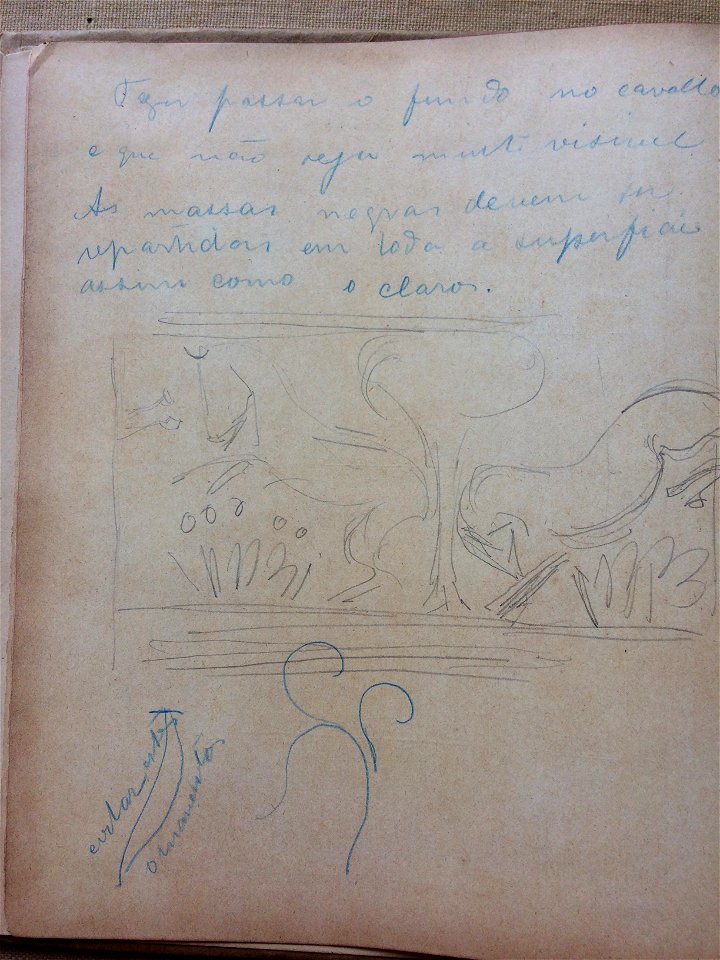 Fazer passar o fundo no cavallo
e que não seja muit. visivel
As massas negras devem ser
repartidas em toda a superficie
assim como o claros.
evitar estes
ornamentos